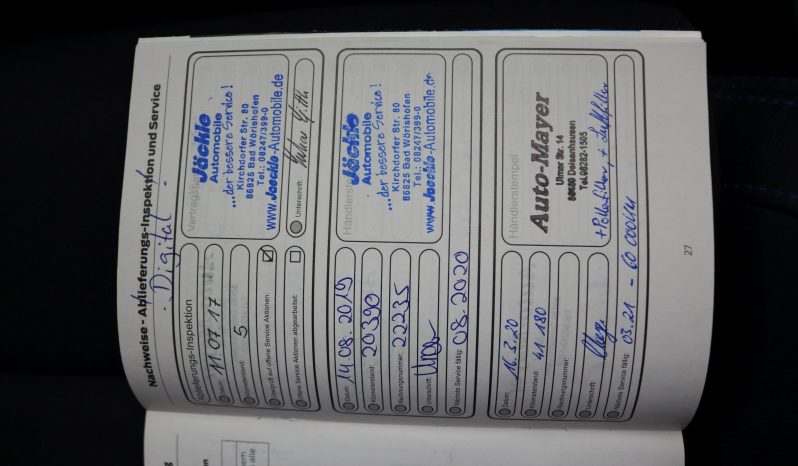 Nachweise - Ablieferungs-Inspektion und Service
- Digital -
Ablieferungs-Inspektion
Datum: 11.07.17
Kilometerstand: 5
offene Service Aktionen:
Offene Service Aktionen abgearbeitet:
Jäckle
Automobile
....der bessere Service!
Kirchdorfer Str. 80
86825 Bad Wörishofen
Tel.: 08247/399-0
www.Jaeckle-Automobile.de
Unterschrift:
Datum: 14.08.2019
Kilometerstand: 20390
Rechnungsnummer: 22235
Unterschrift:
Nächste Service fällig: 08.2020
Händlerstempel
Jäckle
Automobile
....der bessere Service!
Kirchdorfer Str. 80
86825 Bad Wörishofen
Tel.: 08247/399-0
www.Jaeckle-Automobile.de
Datum: 16.3.20
Kilometerstand: 41 180
Rechnungsnummer:
Unterschrift:
Nächste Service fällig: 03.21 - 60 000
Händlerstempel
Auto-Mayer
Ulmer Str. 14
Deisenhausen
Tel. 08282-1505
+ Pollenfilter + Luftfilter
27